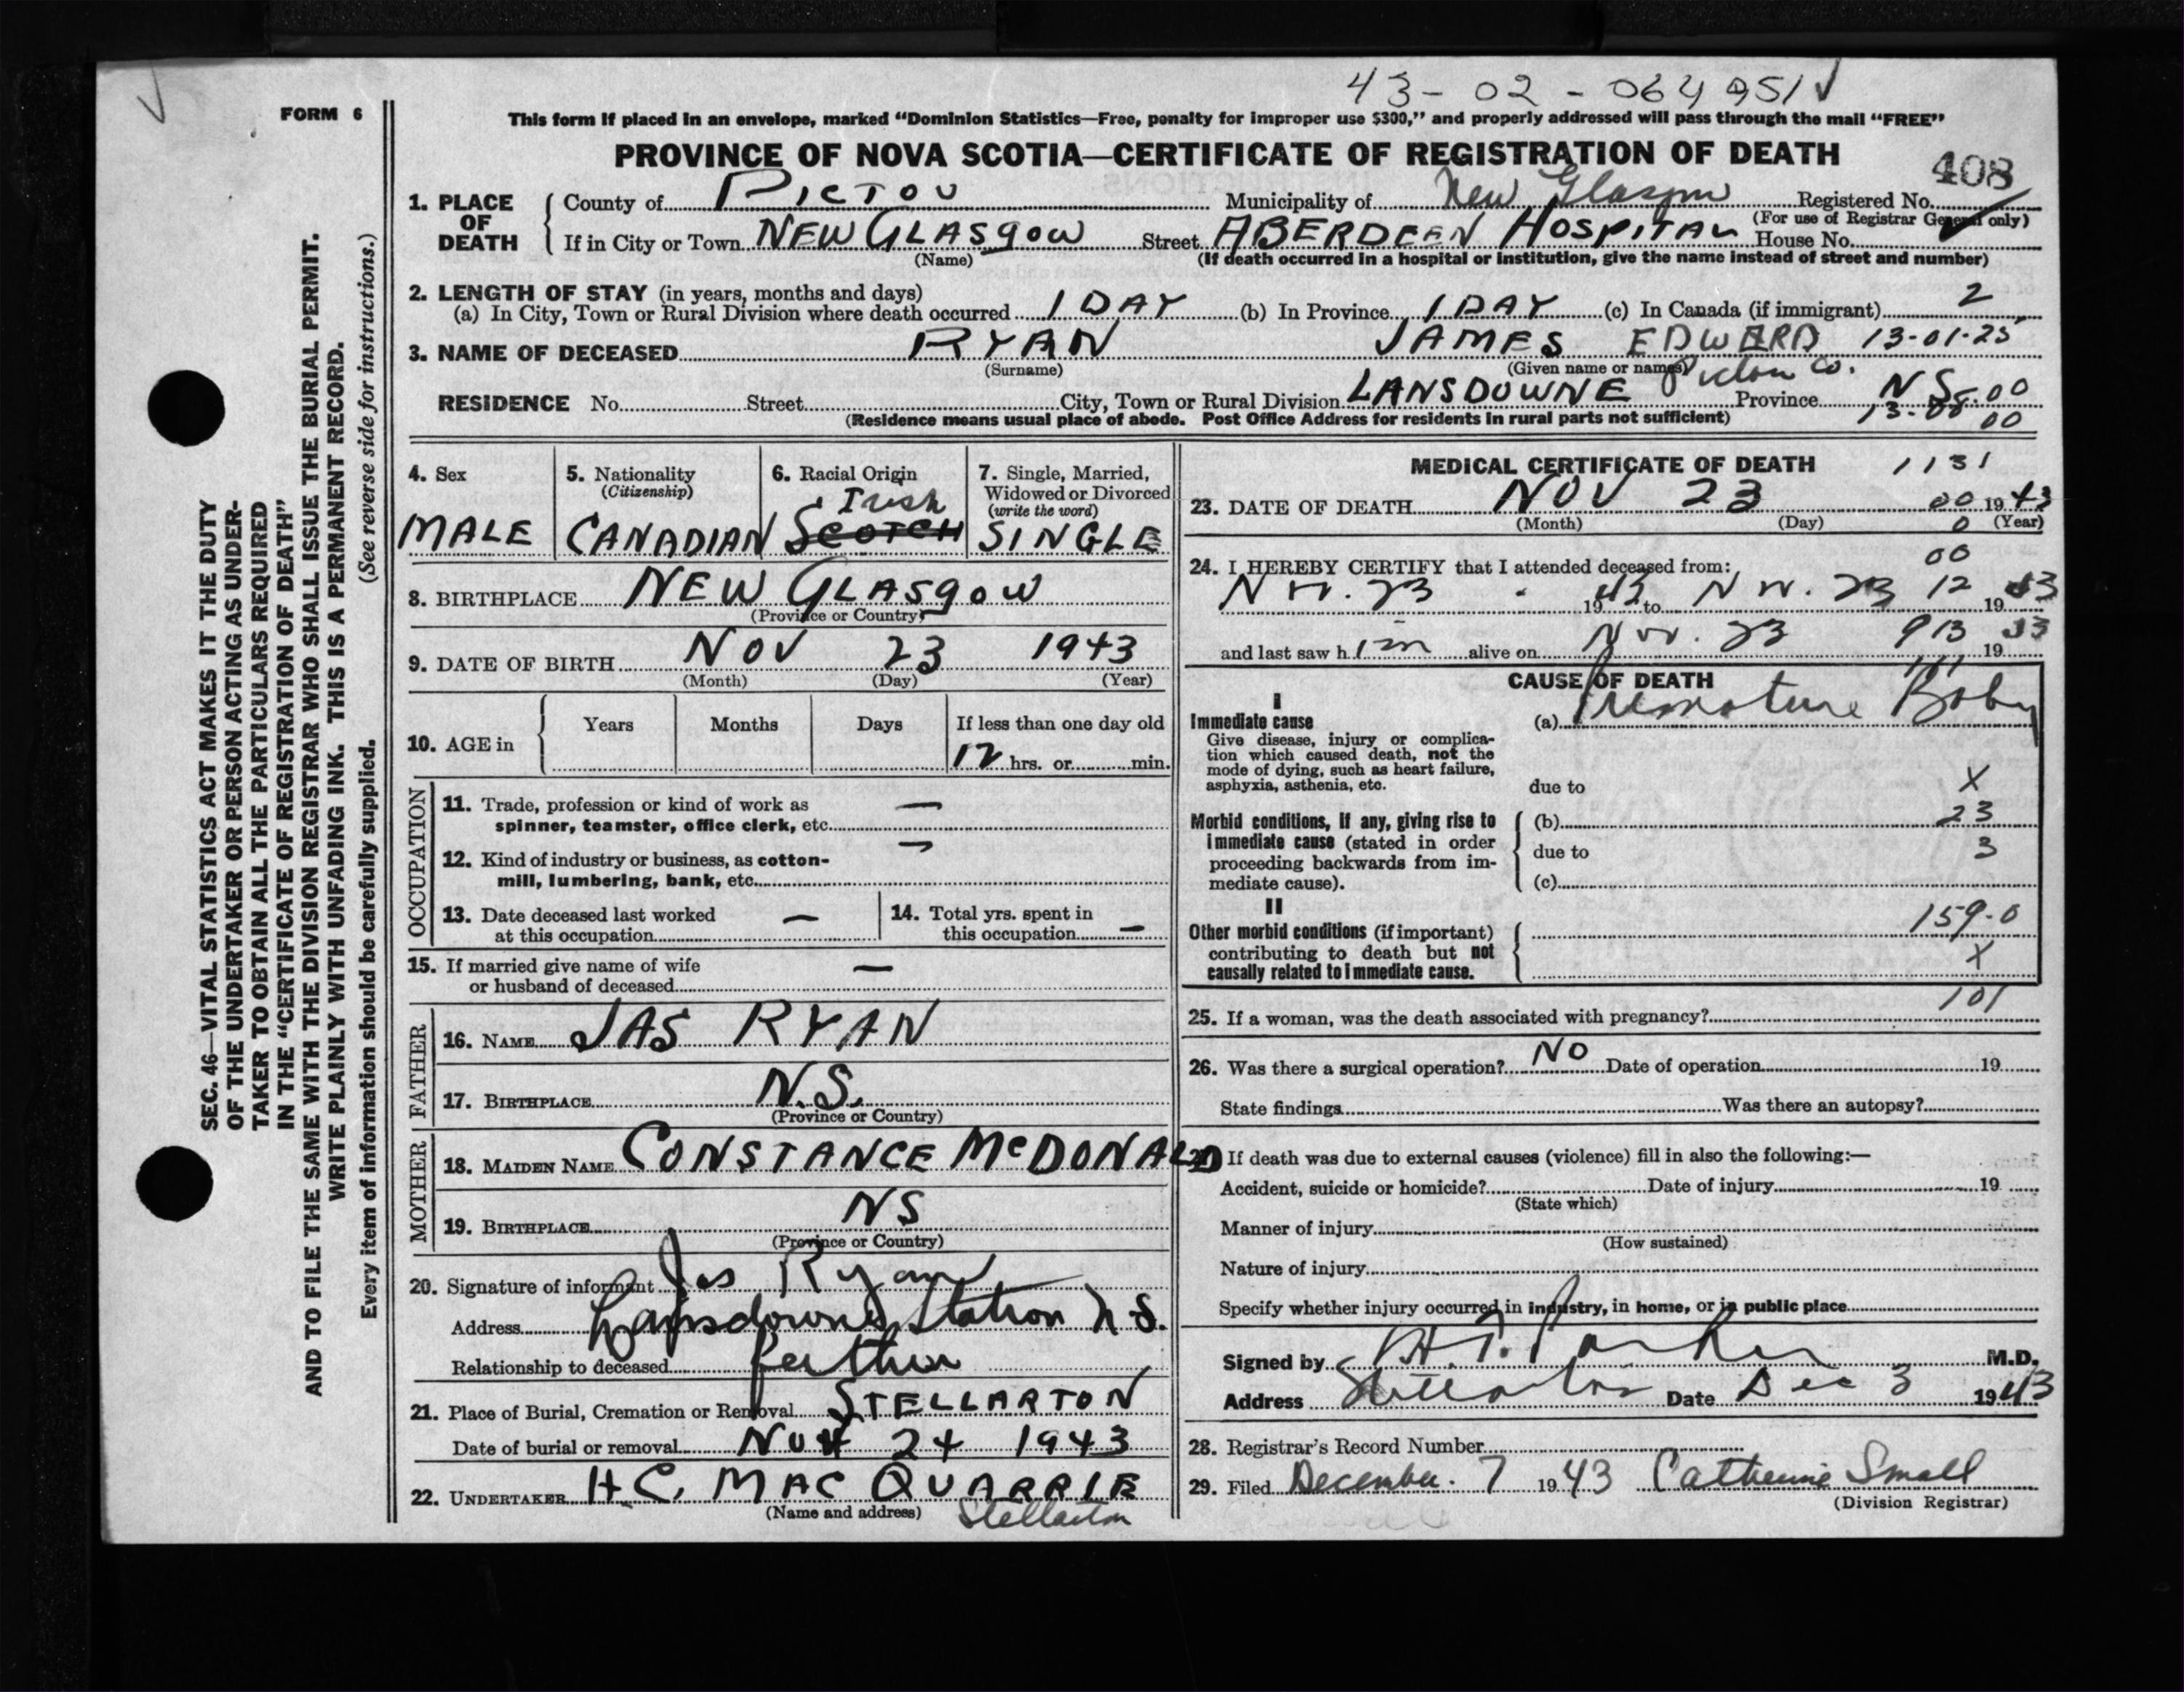 43-02-064951
FORM 6
This form if placed in an envelope, marked "Dominion Statistics—Free, penalty for improper use $300," and properly addressed will pass through the mail "FREE"
PROVINCE OF NOVA SCOTIA—CERTIFICATE OF REGISTRATION OF DEATH
408
1. PLACE OF DEATH
County of PICTOU Municipality of New Glasgow Registered No.
(For use of Registrar General only)
If in City or Town NEW GLASGOW Street ABERDEEN HOSPITAL House No.
(Name) (If death occurred in a hospital or institution, give the name instead of street and number)
2. LENGTH OF STAY (in years, months and days)
(a) In City, Town or Rural Division where death occurred 1 DAY (b) In Province 1 DAY (c) In Canada (if immigrant) 2
3. NAME OF DECEASED RYAN JAMES EDWARD 13-01-25
(Surname) (Given name or names)
Pictou Co.
RESIDENCE No. Street City, Town or Rural Division LANSDOWNE Province N S
(Residence means usual place of abode. Post Office Address for residents in rural parts not sufficient)
4. Sex MALE
5. Nationality (Citizenship) CANADIAN
6. Racial Origin Irish SCOTCH
7. Single, Married, Widowed or Divorced (write the word) SINGLE
8. BIRTHPLACE NEW GLASGOW
(Province or Country)
9. DATE OF BIRTH NOV 23 1943
(Month) (Day) (Year)
10. AGE in Years Months Days If less than one day old
12 hrs. or min.
OCCUPATION
11. Trade, profession or kind of work as spinner, teamster, office clerk, etc. —
12. Kind of industry or business, as cotton-mill, lumbering, bank, etc. —
13. Date deceased last worked at this occupation —
14. Total yrs. spent in this occupation —
15. If married give name of wife or husband of deceased —
FATHER
16. NAME JAS RYAN
17. BIRTHPLACE N.S.
(Province or Country)
MOTHER
18. MAIDEN NAME CONSTANCE McDONALD
19. BIRTHPLACE NS
(Province or Country)
20. Signature of informant Jas Ryan
Address Lansdowne Station N S.
Relationship to deceased father
21. Place of Burial, Cremation or Removal STELLARTON
Date of burial or removal NOV 24 1943
22. UNDERTAKER H.C. MACQUARRIE
(Name and address) Stellarton
MEDICAL CERTIFICATE OF DEATH 1131
23. DATE OF DEATH NOV 23 00 1943
(Month) (Day) 0 (Year)
24. I HEREBY CERTIFY that I attended deceased from: 00
Nov. 23 1943 to Nov. 23 12 1943
and last saw him alive on Nov. 23 913 1943
CAUSE OF DEATH
I
Immediate cause (a) Premature Baby
Give disease, injury or complication which caused death, not the mode of dying, such as heart failure, asphyxia, asthenia, etc.
due to X
Morbid conditions, if any, giving rise to immediate cause (stated in order proceeding backwards from immediate cause).
(b) 23
due to 3
(c)
II
Other morbid conditions (if important) contributing to death but not causally related to immediate cause.
159.0
X
101
25. If a woman, was the death associated with pregnancy?
26. Was there a surgical operation? NO Date of operation 19
State findings Was there an autopsy?
If death was due to external causes (violence) fill in also the following:—
Accident, suicide or homicide? Date of injury 19
(State which)
Manner of injury
(How sustained)
Nature of injury
Specify whether injury occurred in industry, in home, or in public place
Signed by H.T. Parker M.D.
Address Stellarton Date Dec 3 1943
28. Registrar's Record Number
29. Filed December 7 1943 Catherine Small
(Division Registrar)
SEC. 46—VITAL STATISTICS ACT MAKES IT THE DUTY
OF THE UNDERTAKER OR PERSON ACTING AS UNDER-
TAKER TO OBTAIN ALL THE PARTICULARS REQUIRED
IN THE "CERTIFICATE OF REGISTRATION OF DEATH"
AND TO FILE THE SAME WITH THE DIVISION REGISTRAR WHO SHALL ISSUE THE BURIAL PERMIT.
WRITE PLAINLY WITH UNFADING INK. THIS IS A PERMANENT RECORD.
Every item of information should be carefully supplied. (See reverse side for instructions.)